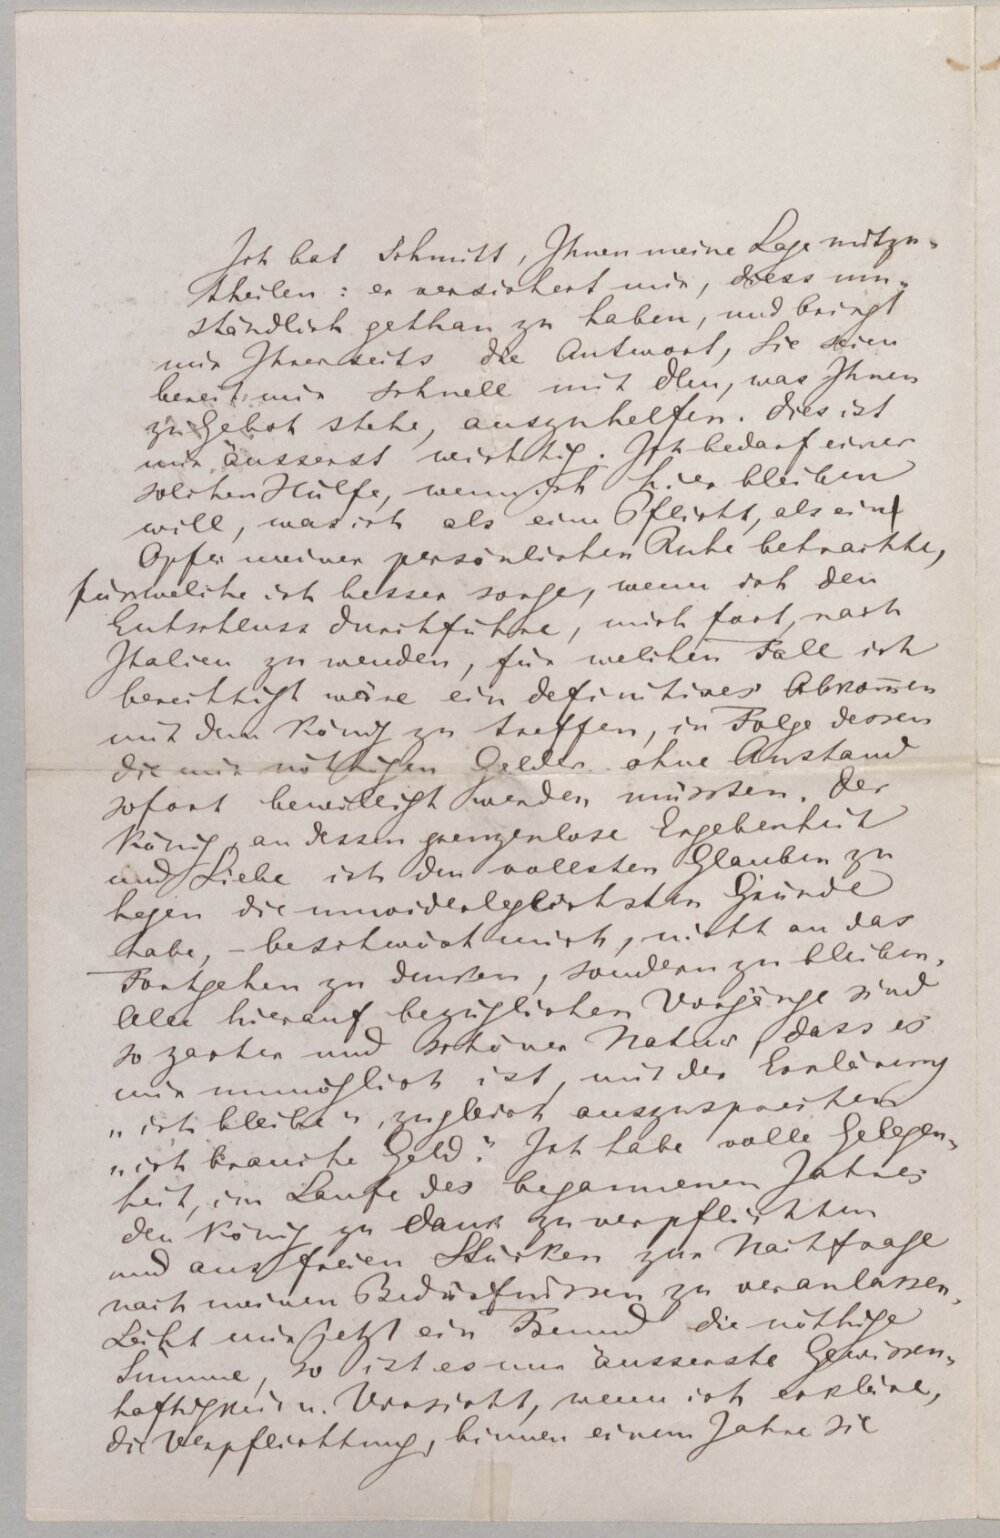 Ich bat Schmitt, Ihnen meine Lage mitzu-
theilen: er versichert mir, diess um-
ständlich gethan zu haben, und bringt
mir Ihrerseits die Antwort, Sie seien
bereit mir schnell mit dem, was Ihnen
zu Gebot stehe, auszuhelfen. Dies ist
mir äusserst wichtig. Ich bedarf einer
solchen Hülfe, wenn ich hier bleiben
will, was ich als eine Pflicht, als ein
Opfer meiner persönlichen Ruhe betrachte,
für welche ich besser sorge, wenn ich den
Entschluss durchführe, mich fort, nach
Italien zu wenden, für welchen Fall ich
berechtigt wäre ein definitives Abkom̅en
mit dem König zu treffen, in Folge dessen
die mir nöthigen Gelder ohne Anstand
sofort bewilligt werden müssten. Der
König, an dessen grenzenlose Ergebenheit
und Liebe ich den vollsten Glauben zu
hegen die unwiderleglichsten Gründe
habe, – beschwört mich, nicht an das
Fortgehen zu denken, sondern zu bleiben.
Alle hierauf bezüglichen Vorgänge sind
so zarter und schöner Natur, dass es
mir unmöglich ist, mit der Erklärung
„ich bleibe", zugleich auszusprechen
„ich brauche Geld." Ich habe volle Gelegen-
heit, im Laufe des begonnenen Jahres
den König zu Dank zu verpflichten
und aus freien Stücken zur Nachfrage
nach meinen Bedürfnissen zu veranlassen.
Leiht mir jetzt ein Freund die nöthige
Summe, so ist es nur äusserste Gewissen-
haftigkeit u. Vorsicht, wenn ich erkläre,
die Verpflichtung, binnen einem Jahre sie